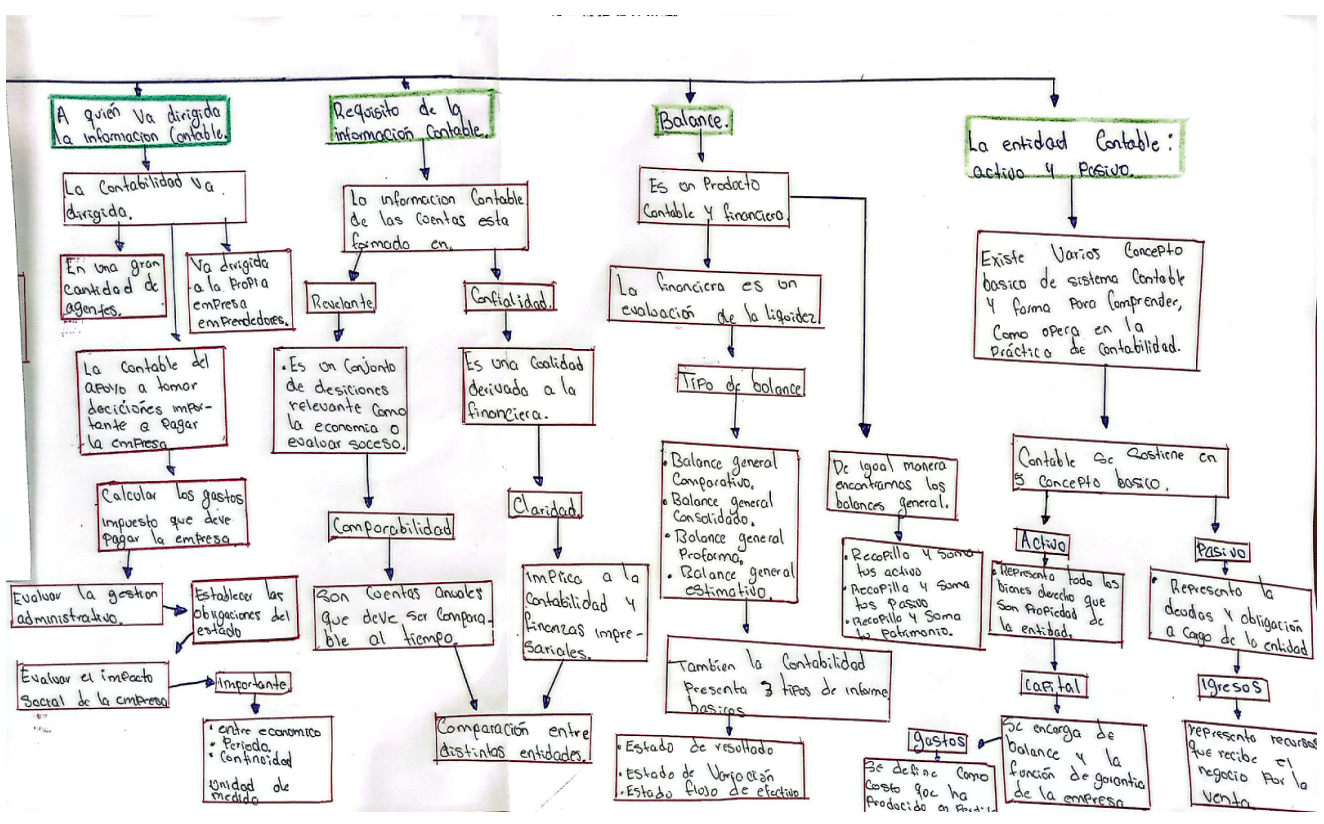 A quién va dirigida
la informacion Contable.
La Contabilidad va
dirigida.
En una gran
cantidad de
agentes.
Va dirigida
a la propia
empresa
emprendedores.
La contable del
apoyo a tomar
deciciones impor-
tante a pagar
la empresa
Calcular los gastos
impuesto que deve
Pagar la empresa.
Evaluar la gestion
administrativo.
Establecer las
obligaciones del
estado
Evaluar el impacto
Social de la empresa
importante
• entre economico
• Periodo.
• Continuidad
Unidad de
medido
Requisito de la
informacion Contable.
La informacion Contable
de las cuentas esta
formado en.
Revelante.
• Es un Conjunto
de desiciones
relevante como
la economia o
evaluar suceso.
Comparabilidad
Son Cuentas anuales
que deve ser Compara-
ble al tiempo.
Confialidad.
Es una Cualidad
derivada a la
financiera.
Claridad.
implica a la
Contabilidad y
finanzas impre-
sariales.
Comparación entre
distintas entidades.
Balance.
Es un Producto
Contable y financiera.
La financiera es un
evaluación de la liquidez
Tipo de balance
• Balance general
Comparativo.
• Balance general
Consolidado.
• Balance general
Proforma.
• Balance general
estimativo.
De igual manera
encontramos los
balances general.
• Recopilla y Suma
tus activo
• Recopilla y Suma
tus Pasivo
• Recopilla y Suma
tu Patrimonio.
Tambien la Contabilidad
Presenta 3 tipos de informe
basicos
• Estado de resultado
• Estado de Variación
• Estado flujo de efectivo
La entidad Contable:
activo y Pasivo.
Existe Varios Concepto
basico de sistema Contable
y forma para Comprender,
Como opera en la
Práctica de Contabilidad.
Contable Se Sostiene en
5 Concepto basico.
Activo
• Representa todo los
bienes derecho que
Son Propiedad de
la entidad.
Capital
Se encarga de
balance y la
función de garantia
de la empresa
gastos
Se define Como
Costo que ha
Producido en
Pasivo
• Representa la
deudas y obligación
a Cargo de la entidad
Igresos
representa recursos
que recibe el
negocio por la
venta.